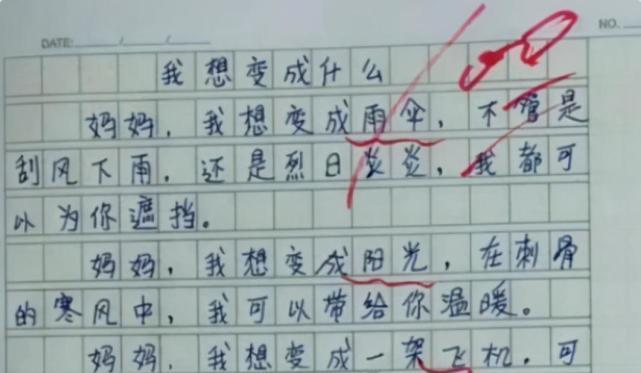 DATE: / / NO.
我想变成什么
妈妈，我想变成雨伞，不管是
刮风下雨，还是烈日炎炎，我都可
以为你遮挡。
妈妈，我想变成阳光，在刺骨
的寒风中，我可以带给你温暖。
妈妈，我想变成一架飞机，可